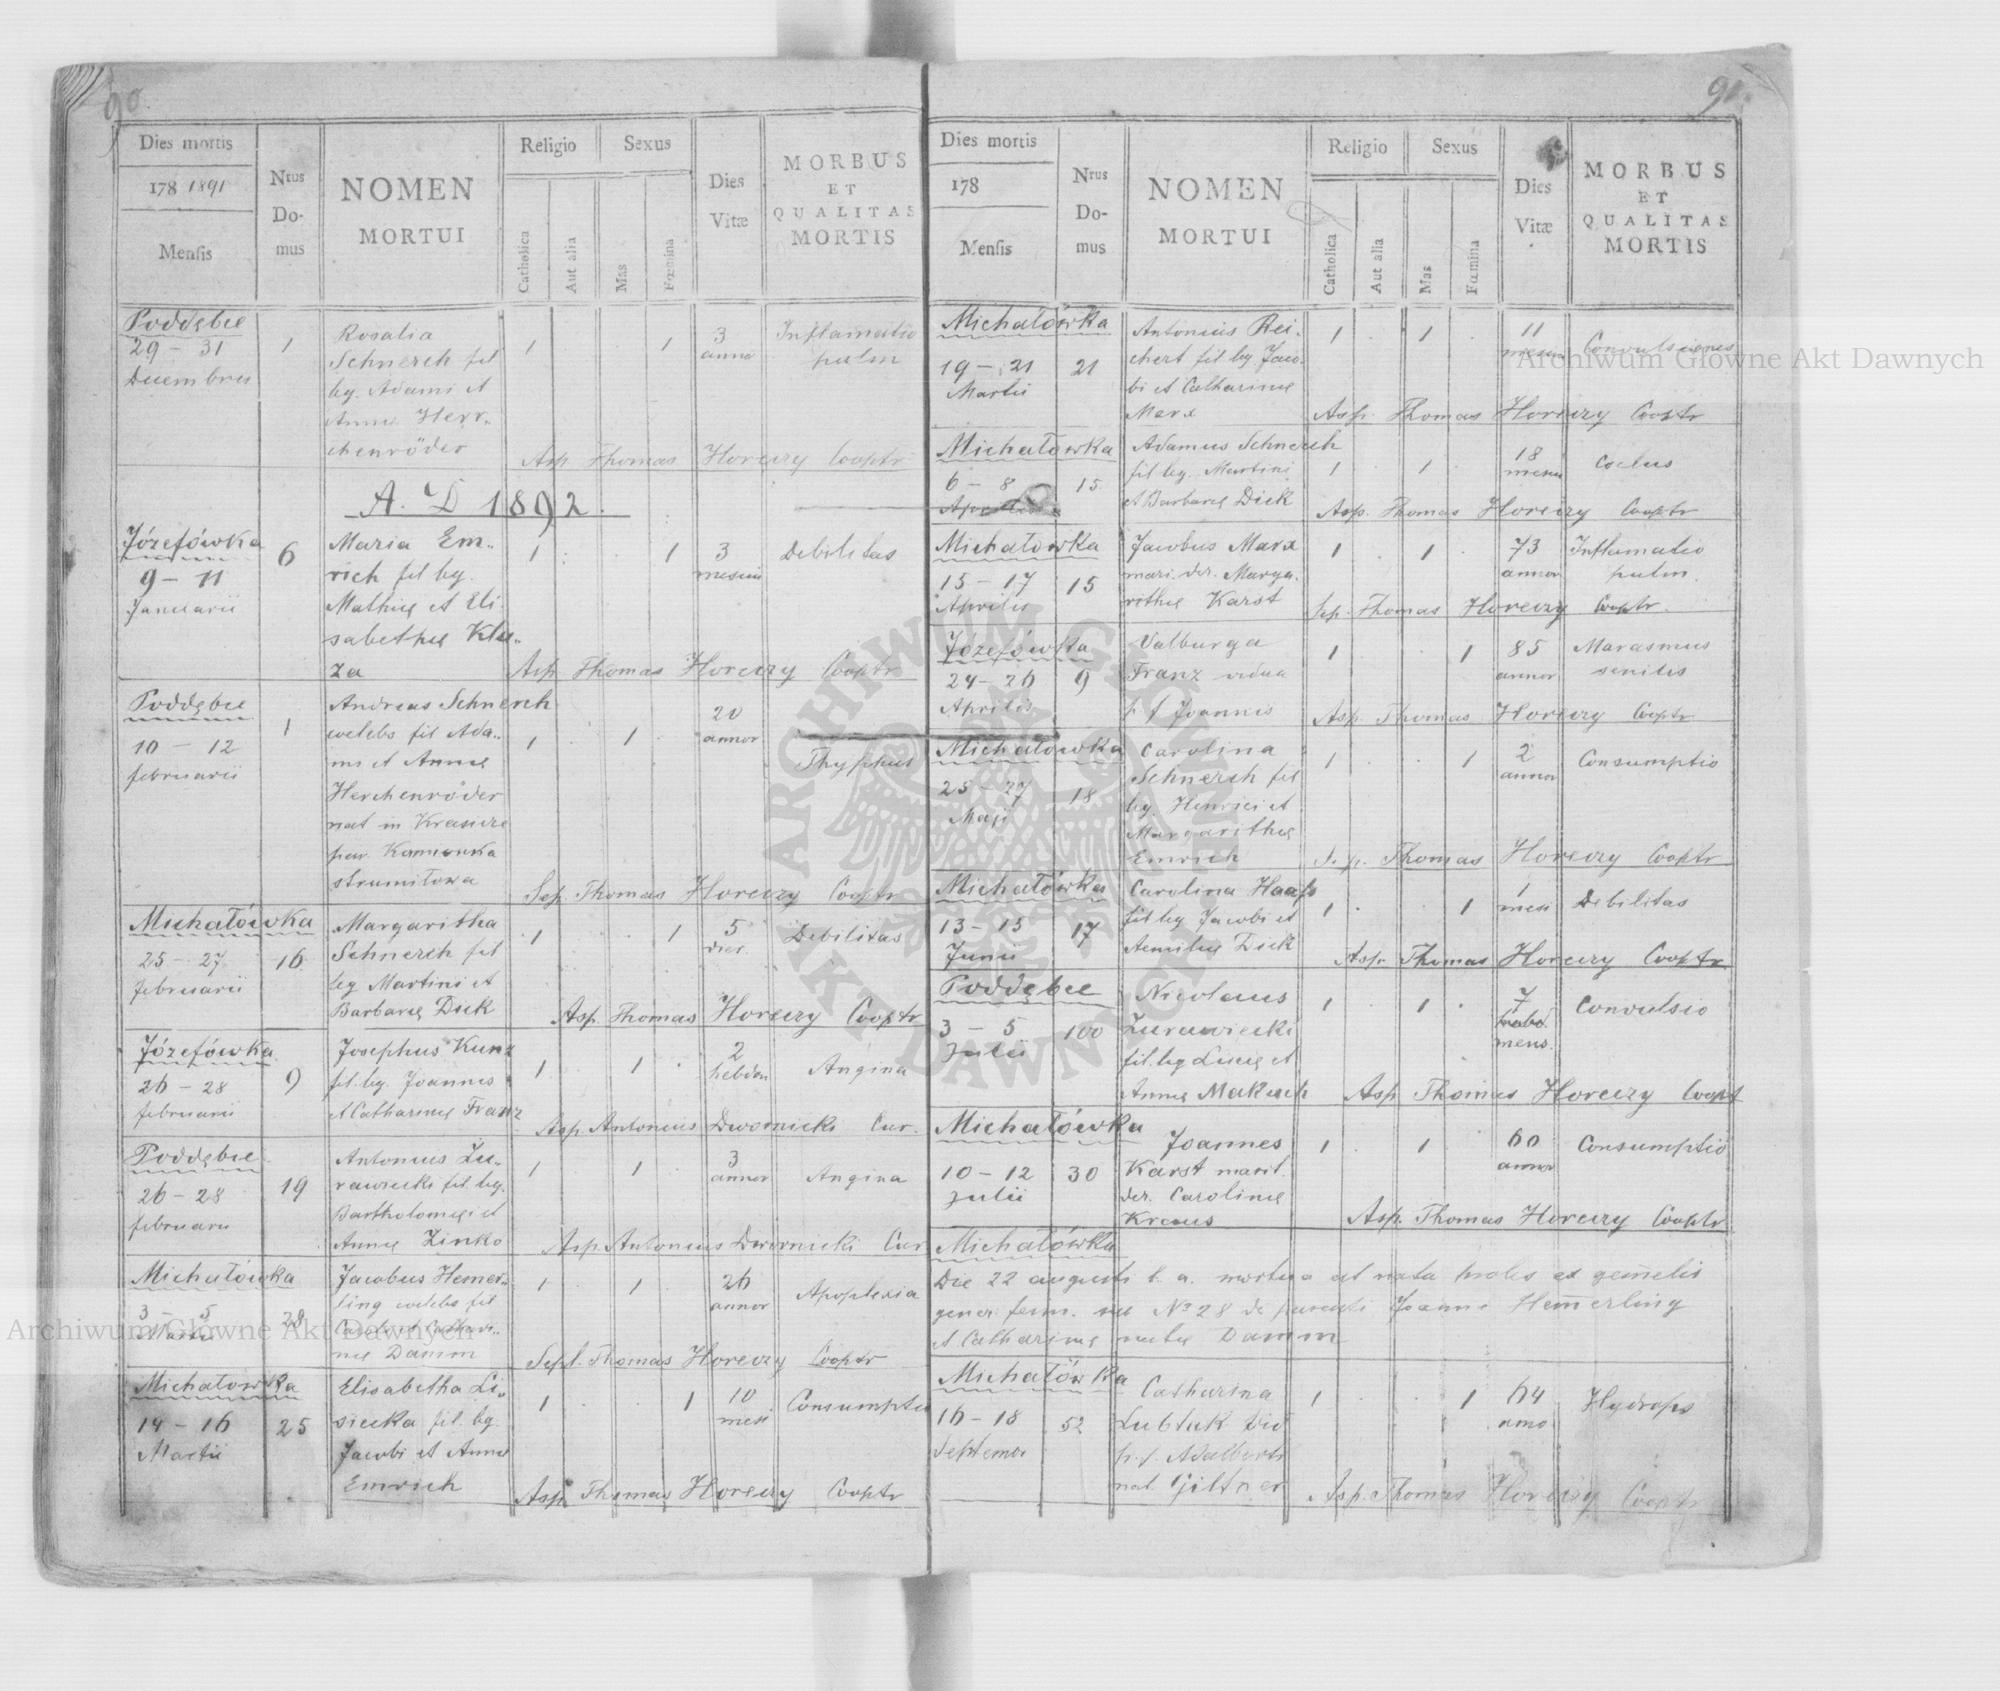 90.
Dies mortis
178 1891
Mensis
Nrus Do-mus
NOMEN
MORTUI
Religio
Catholica
Aut alia
Sexus
Mas
Fœmina
Dies
Vitæ
MORBUS
ET
QUALITAS
MORTIS
Poddębce
29 - 31
Decembris
1
Rosalia
Schnerch fil
leg. Adami et
Annae Herr-
chenröder
1 . . 1
3
annor
Inflamatio
pulm
Asp. Thomas Horeczy Cooptr
A. D 1892.
Józefówka
9 - 11
Januarii
6
Maria Em-
rich fil leg.
Mathiae et Eli
sabethae Klu-
za
1 . . 1
3
mesium
Debilitas
Asp. Thomas Horeczy Cooptr
Poddębce
10 - 12
februarii
1
Andreas Schnerch
coelebs fil Ada-
mi et Annae
Herchenröder
nat in
par. Kamionka
strumiłowa
1 . 1 .
20
annor
Thyphus
Sep. Thomas Horeczy Cooptr
Michałówka
25 - 27
februarii
16
Margaritha
Schnerch fil
leg Martini et
Barbarae Dick
1 . . 1
5
dier.
Debilitas
Asp. Thomas Horeczy Cooptr
Józefówka
26 - 28
februarii
9
Josephus Kunz
fil. leg. Joannis
et Catharinae Franz
1 . 1 .
2
hebdom
Angina
Asp. Antonius Dwornicki Cur.
Poddębce
26 - 28
februarii
19
Antonius Żu-
rawiecki fil. leg.
Bartholomaei et
Annae Zinko
1 . 1 .
3
annor
Angina
Asp. Antonius Dwornicki Cur
Michałówka
3 - 5
Martii
28
Jacobus Hemer-
ling coelebs fil
Caroli et Cathari-
nae Damm
1 . 1 .
26
annor
Apoplexia
Sepl. Thomas Horeczy Cooptr
Michałowka
14 - 16
Martii
25
Elisabetha Li-
siecka fil. leg.
Jacobi et Annae
Emrich
1 . . 1
10
mesi
Consumptio
Asp. Thomas Horeczy Cooptr
91.
Dies mortis
178
Mensis
Nrus Do-mus
NOMEN
MORTUI
Religio
Catholica
Aut alia
Sexus
Mas
Fœmina
Dies
Vitæ
MORBUS
ET
QUALITAS
MORTIS
Michałówka
19 - 21
Martii
21
Antonius Rei-
chert fil leg Jaco-
bi et Catharinae
Marx
1 . 1 .
11
mesium
Convulsiones
Asp. Thomas Horeczy Cooptr
Michałowka
6 - 8
15.
Adamus Schnerch
fil leg. Martini
et Barbarae Dick
1 . 1 .
18
mesiu
Asp. Thomas Horeczy Cooptr
Michałowka
15 - 17
Aprilis
15
Jacobus Marx
mari. der. Marga-
rithae Karst
1 . 1 .
73
annor
Inflamatio
pulm.
Sep. Thomas Horeczy Cooptr.
Józefówka
24 - 26
Aprilis
9
Valburga
Franz vidua
p. f Joannis
1 . . 1
85
annor
Marasmus
senilis
Asp. Thomas Horeczy Cooptr
Michałowka
25 - 27
Maji
18
Carolina
Schnerch fil
leg. Henrici et
Margarithae
Emrich
1 . . 1
2
annor
Consumptio
Sep. Thomas Horeczy Cooptr
Michałówka
13 - 15
Junii
17
Carolina Haass
fil leg Jacobi et
Aemiliae Dick
1 . . 1
1
mesi
Debilitas
Asp. Thomas Horeczy Cooptr
Poddębce
3 - 5
Julii
100
Nicolaus
Żurawiecki
fil. leg Lucae et
Annae Makuch
1 . 1 .
7
hebd.
mens.
Convulsio
Asp Thomas Horeczy Coopt
Michałówka
10 - 12
Julii
30
Joannes
Karst marit.
der. Carolinae
Kraus
1 . 1 .
60
annor
Consumptio
Asp. Thomas Horeczy Cooptr
Michałówka
Die 22 augusti h. a. mortua et nata proles ex gemelis
gener. fem. sub No 28 de parenti Joanne Hemerling
et Catharinae natae Damm
Michałówka
16 - 18
Septemar
52
Catharina
p. f. Adalberti
nat. Giltner
1 . . 1
64
anno
Hydrops
Asp. Thomas Horeczy Cooptr
Archiwum Główne Akt Dawnych
Archiwum Główne Akt Dawnych
ARCHIWUM GŁÓWNE AKT DAWNYCH